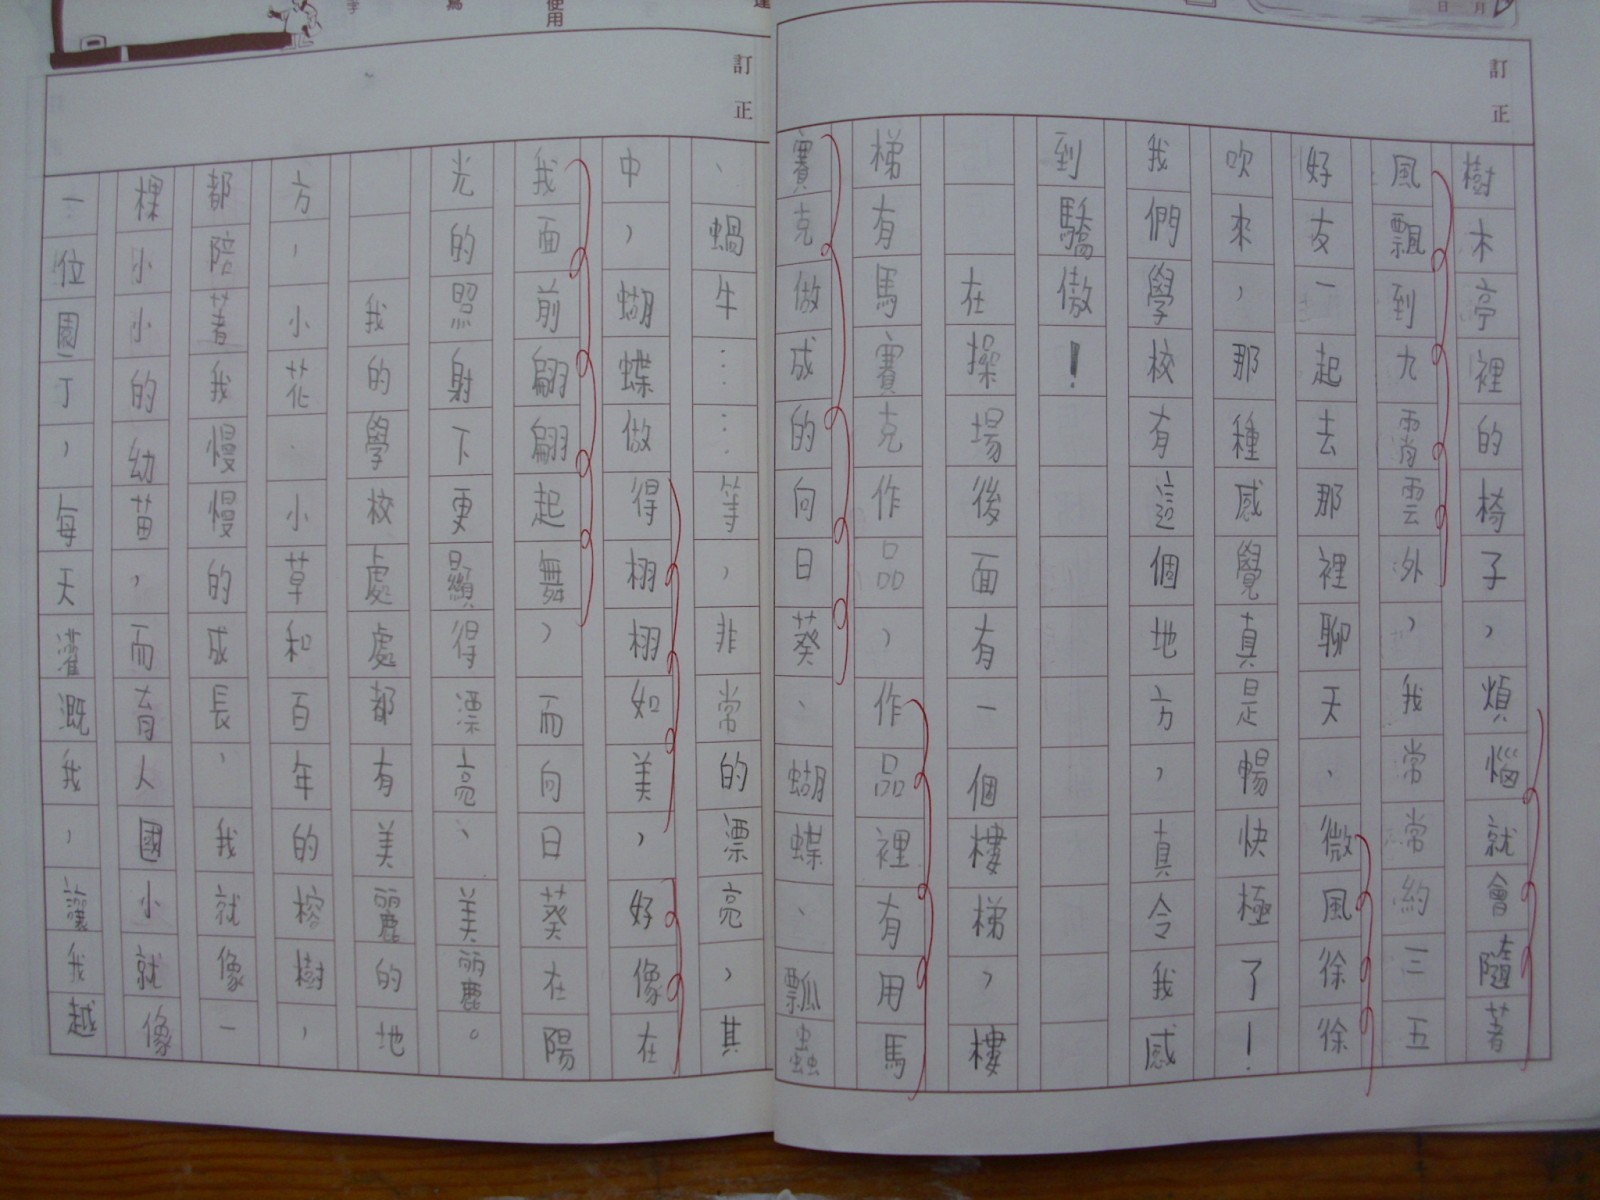 日 月
訂正
樹木亭裡的椅子，煩惱就會隨著
風飄到九霄雲外，我常常約三五
好友一起去那裡聊天、微風徐徐
吹來，那種感覺真是暢快極了！
我們學校有這個地方，真令我感
到驕傲！
在操場後面有一個樓梯，樓
梯有馬賽克作品，作品裡有用馬
賽克做成的向日葵、蝴蝶、瓢蟲
使用
訂正
、蝸牛……等，非常的漂亮，其
中，蝴蝶做得栩栩如美，好像在
我面前翩翩起舞，而向日葵在陽
光的照射下更顯得漂亮、美麗。
我的學校處處都有美麗的地
方，小花、小草和百年的榕樹，
都陪著我慢慢的成長，我就像一
棵小小的幼苗，而育人國小就像
一位園丁，每天灌溉我，讓我越